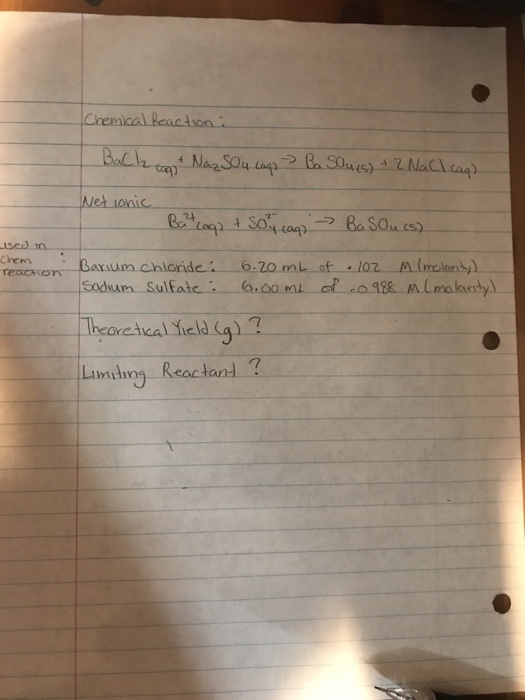 Chemical Reaction:
BaCl2 (aq) + Na2SO4 (aq) → BaSO4(s) + 2 NaCl (aq)
Net ionic
Ba2+ (aq) + SO4 2- (aq) → BaSO4 (s)
used in chem reaction :
Barium chloride: 6.20 mL of .102 M (molarity)
Sodium Sulfate: 6.00 mL of .0988 M (molarity)
Theoretical Yield (g) ?
Limiting Reactant ?